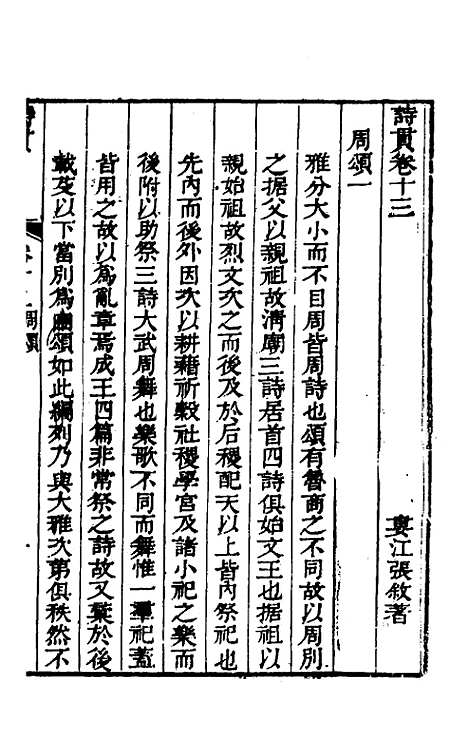 詩貫卷十三
婁江張敘著
周頌一
雅分大小而不目周皆周詩也頌有魯商之不同故以周別
之据父以親祖故清廟三詩居首四詩俱始文王也据祖以
親始祖故烈文次之而後及於后稷配天以上皆内祭祀也
先内而後外因次以耕藉祈榖社稷學宮及諸小祀之樂而
後附以助祭三詩大武周舞也樂歌不同而舞惟一羣祀蓋
皆用之故以為亂章焉成王四篇非常祭之詩故又葉於後
載芟以下當別為豳頌如此編列乃與大雅次第俱秩然不
周頌